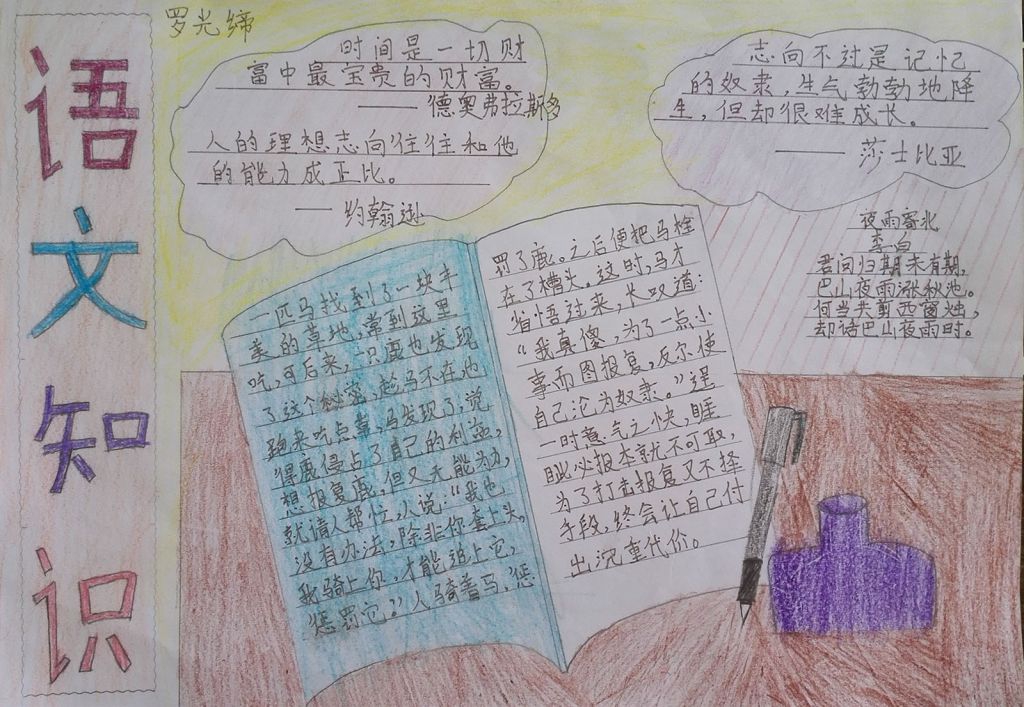 语文知识
罗光缔
时间是一切财
富中最宝贵的财富。
——德奥弗拉斯多
人的理想志向往往和他
的能力成正比。
——约翰逊
志向不过是记忆
的奴隶,生气勃勃地降
生,但却很难成长。
——莎士比亚
夜雨寄北
李白
君问归期未有期,
巴山夜雨涨秋池。
何当共剪西窗烛,
却话巴山夜雨时。
一匹马找到了一块丰
美的草地,常到这里
吃,可后来,一只鹿也发现
了这个秘密,趁马不在地
跑来吃点草,马发现了,说
得鹿侵占了自己的利益,
想报复鹿,但又无能为力,
就请人帮忙,人说:“我也
没有办法,除非你套上头,
我骑上你,才能追上它,
惩罚它。”人骑着马,惩
罚了鹿。之后便把马栓
在了槽头。这时,马才
省悟过来,长叹道:
“我真傻,为了一点小
事而图报复,反尔使
自己沦为奴隶。”逞
一时意气之快,睚
眦必报本就不可取,
为了打击报复又不择
手段,终会让自己付
出沉重代价。